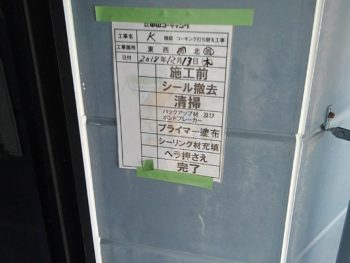 工事名 K 様邸 コーキング打ち替え工事
工事箇所 東 西 南 北
日付 2018年12月13日(木)
施工前
シール撤去
清掃
バックアップ材 及び
ボンドブレーカー
プライマー塗布
シーリング材充填
ヘラ押さえ
完了